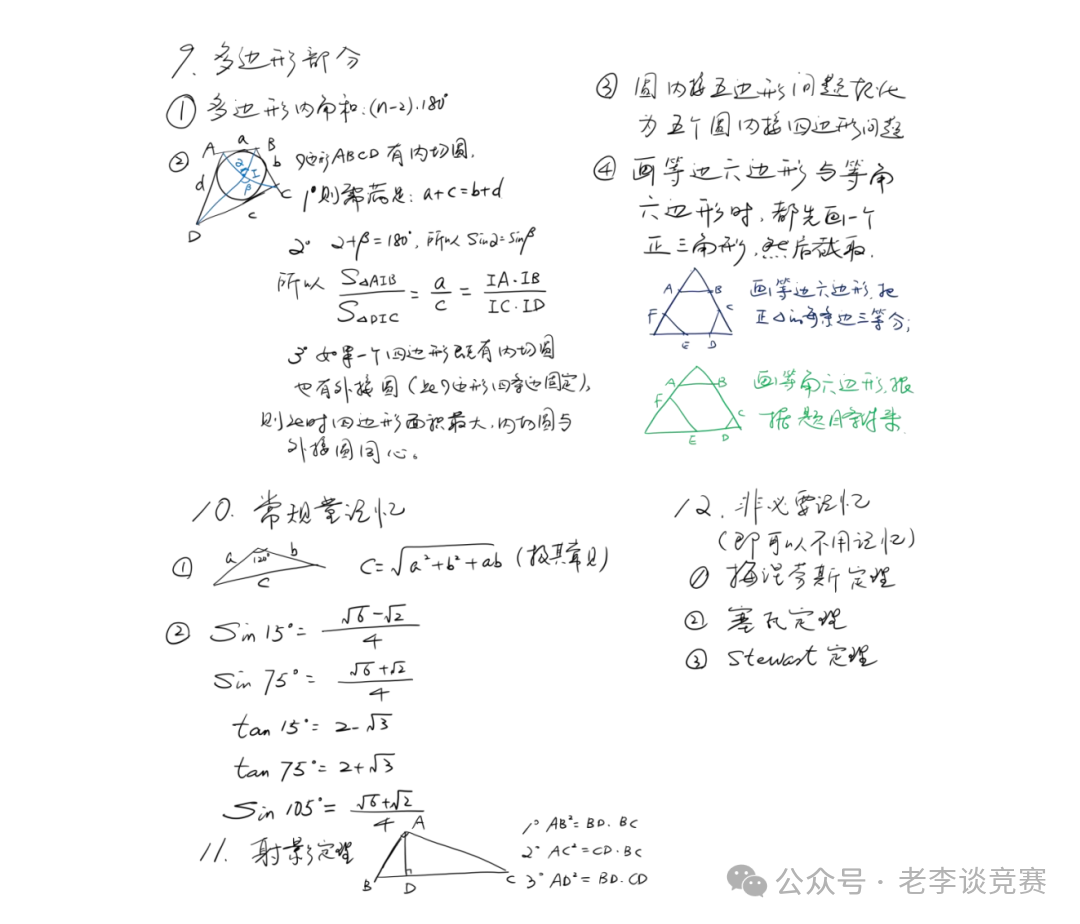 9. 多边形部分
① 多边形内角和:(n-2)·180°
② A a B b C c D d I α β
四边形ABCD有内切圆.
1° 则需满足: a+c=b+d
2° α+β=180°, 所以 sinα=sinβ
所以 S△AIB/S△DIC = a/c = IA·IB/IC·ID
3° 如果一个四边形既有内切圆
也有外接圆(此四边形四条边固定),
则此时四边形面积最大,内切圆与
外接圆同心。
③ 圆内接五边形问题转化
为五个圆内接四边形问题
④ 画等边六边形与等角
六边形时, 都先画一个
正三角形, 然后截取.
A B C D E F
画等边六边形, 把
正△的每条边三等分;
A B C D E F
画等角六边形, 根
据题目条件来.
10. 常规堂记忆
① a b 120° c
C=√(a²+b²+ab) (极其常见)
② Sin 15°= (√6-√2)/4
Sin 75°= (√6+√2)/4
tan 15°= 2-√3
tan 75°= 2+√3
Sin 105°= (√6+√2)/4
11. 射影定理
A B D C
1° AB²=BD·BC
2° AC²=CD·BC
3° AD²=BD·CD
12. 非必要记忆
(即可以不用记忆)
① 梅涅劳斯定理
② 塞瓦定理
③ Stewart定理
公众号·老李谈竞赛